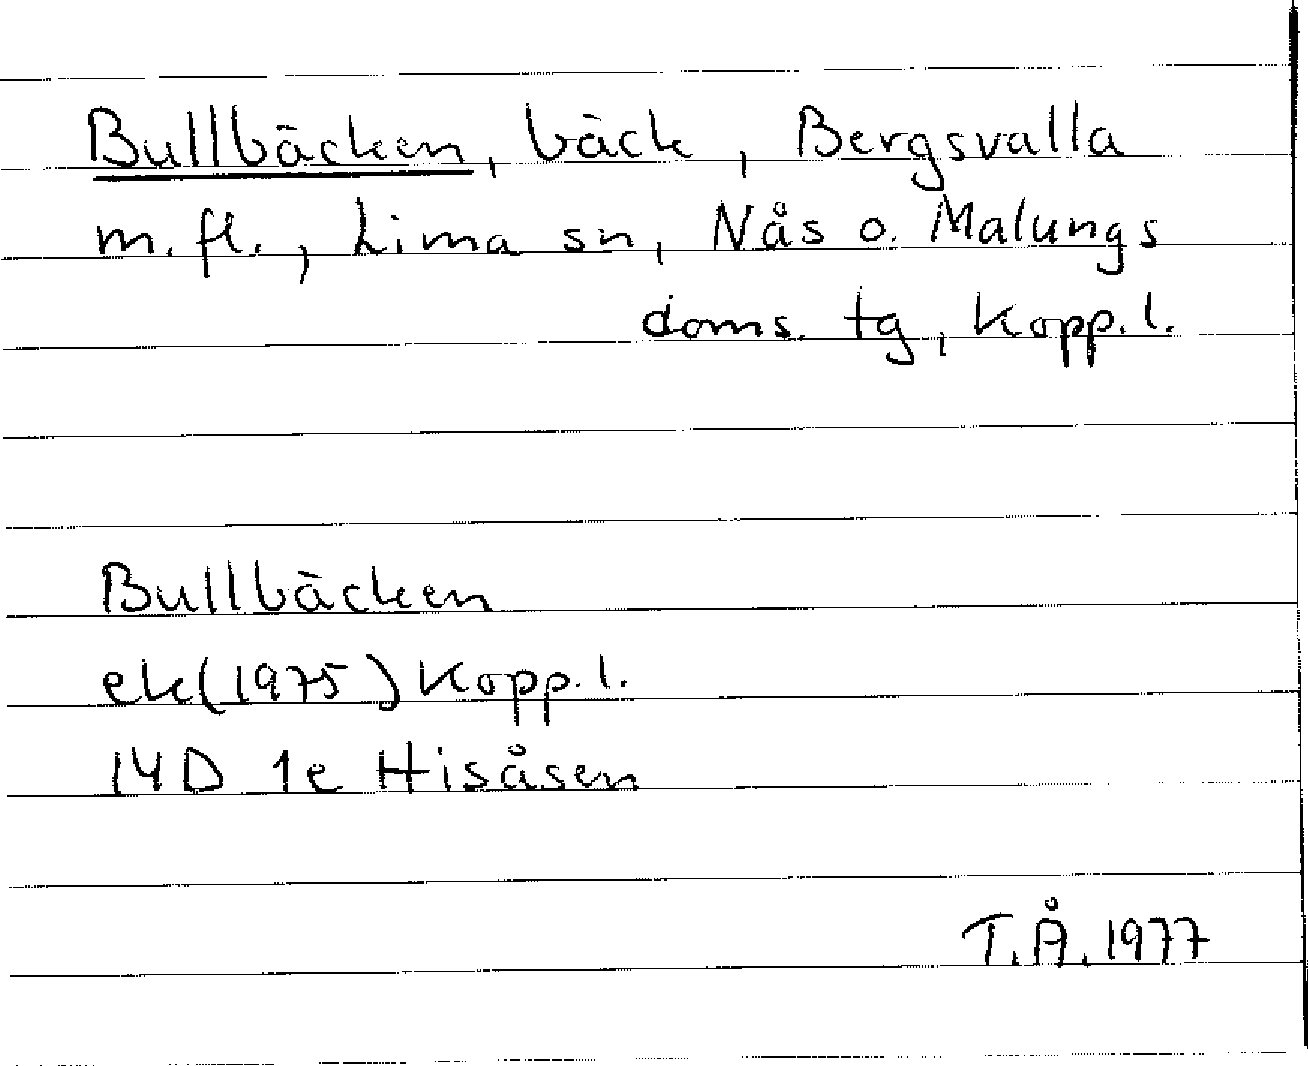 Bullbäcken, bäck, Bergsvalla
m.fl., Lima sn, Nås o. Malungs
doms. tg, Kopp.l.
Bullbäcken
ek(1975) Kopp.l.
14D 1e Hisåsen
T.Å.1977